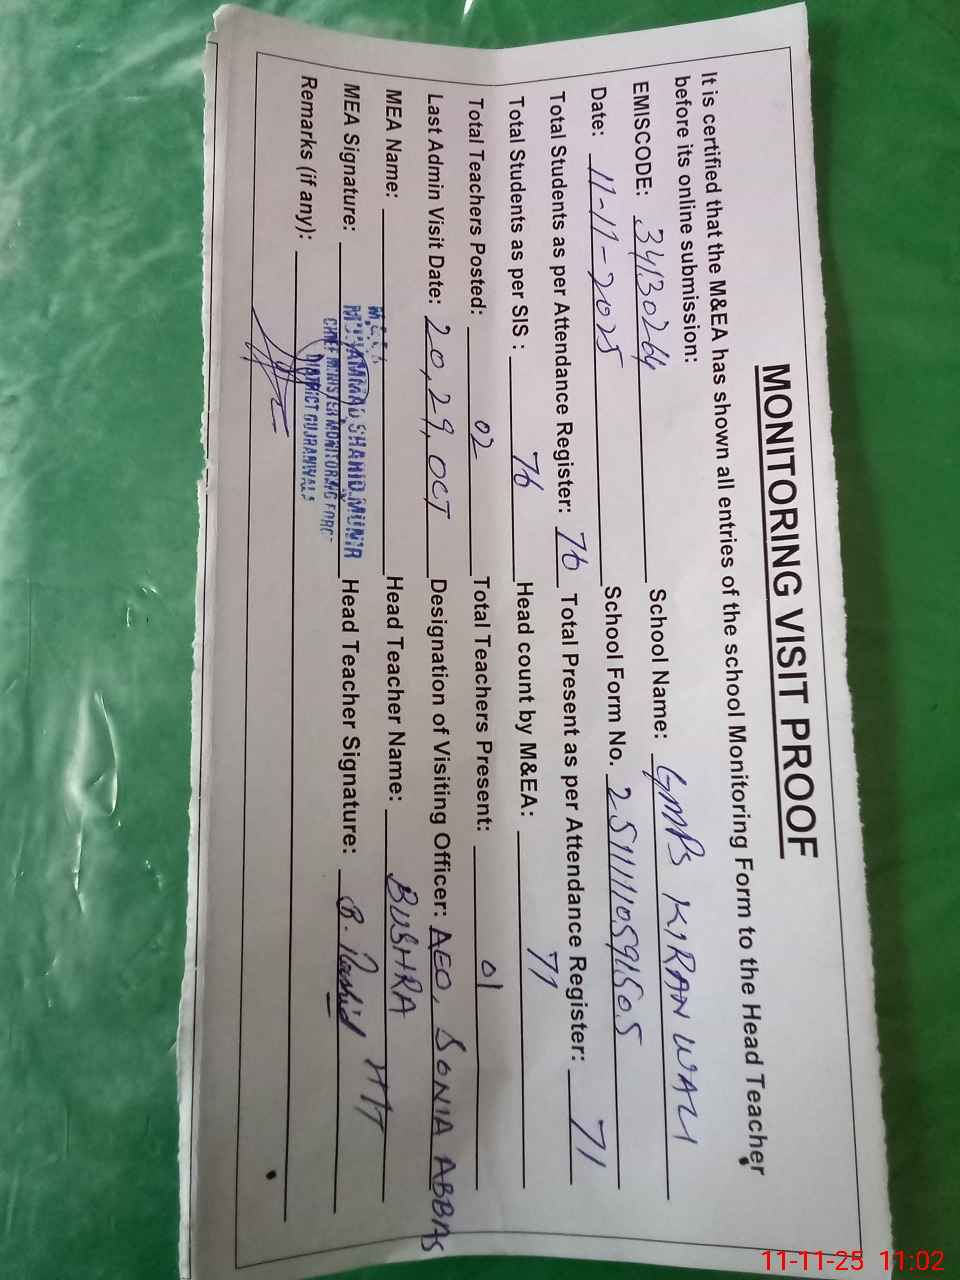 MONITORING VISIT PROOF
It is certified that the M&EA has shown all entries of the school Monitoring Form to the Head Teacher
before its online submission:
EMISCODE: 34130264 School Name: GMPS KIRAN WALI
Date: 11-11-2025 School Form No. 25111110591505
Total Students as per Attendance Register: 76 Total Present as per Attendance Register: 71
Total Students as per SIS : 76 Head count by M&EA: 71
Total Teachers Posted: 02 Total Teachers Present: 01
Last Admin Visit Date: 20, 29, OCT Designation of Visiting Officer: AEO, SONIA ABBAS
MEA Name: Head Teacher Name: BUSHRA
MEA Signature: MUHAMMAD SHAHID MUNIR Head Teacher Signature: B. Rashid HT
CHIEF MINISTER MONITORING FORCE
DISTRICT GUJRANWALA
Remarks (if any):
11-11-25 11:02